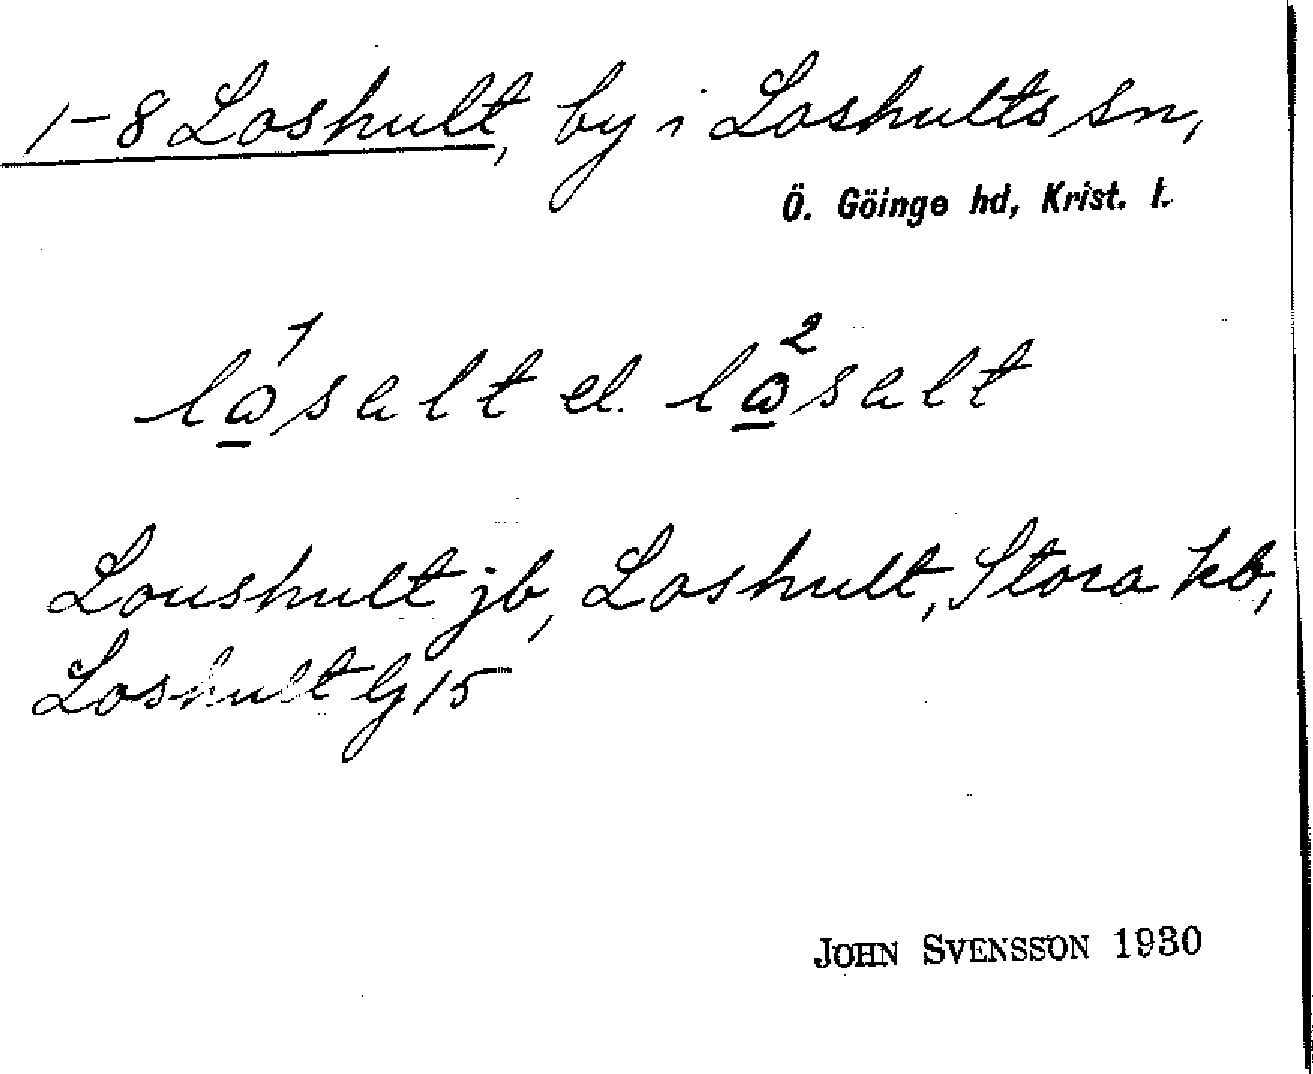 1-8 Loshult, by i Loshults sn,
Ö. Göinge hd, Krist. l.
lω̱¹salt el. lω̱²salt
Loushult jb, Loshult, Stora kb,
Loshult Gj 15
JOHN SVENSSON 1930